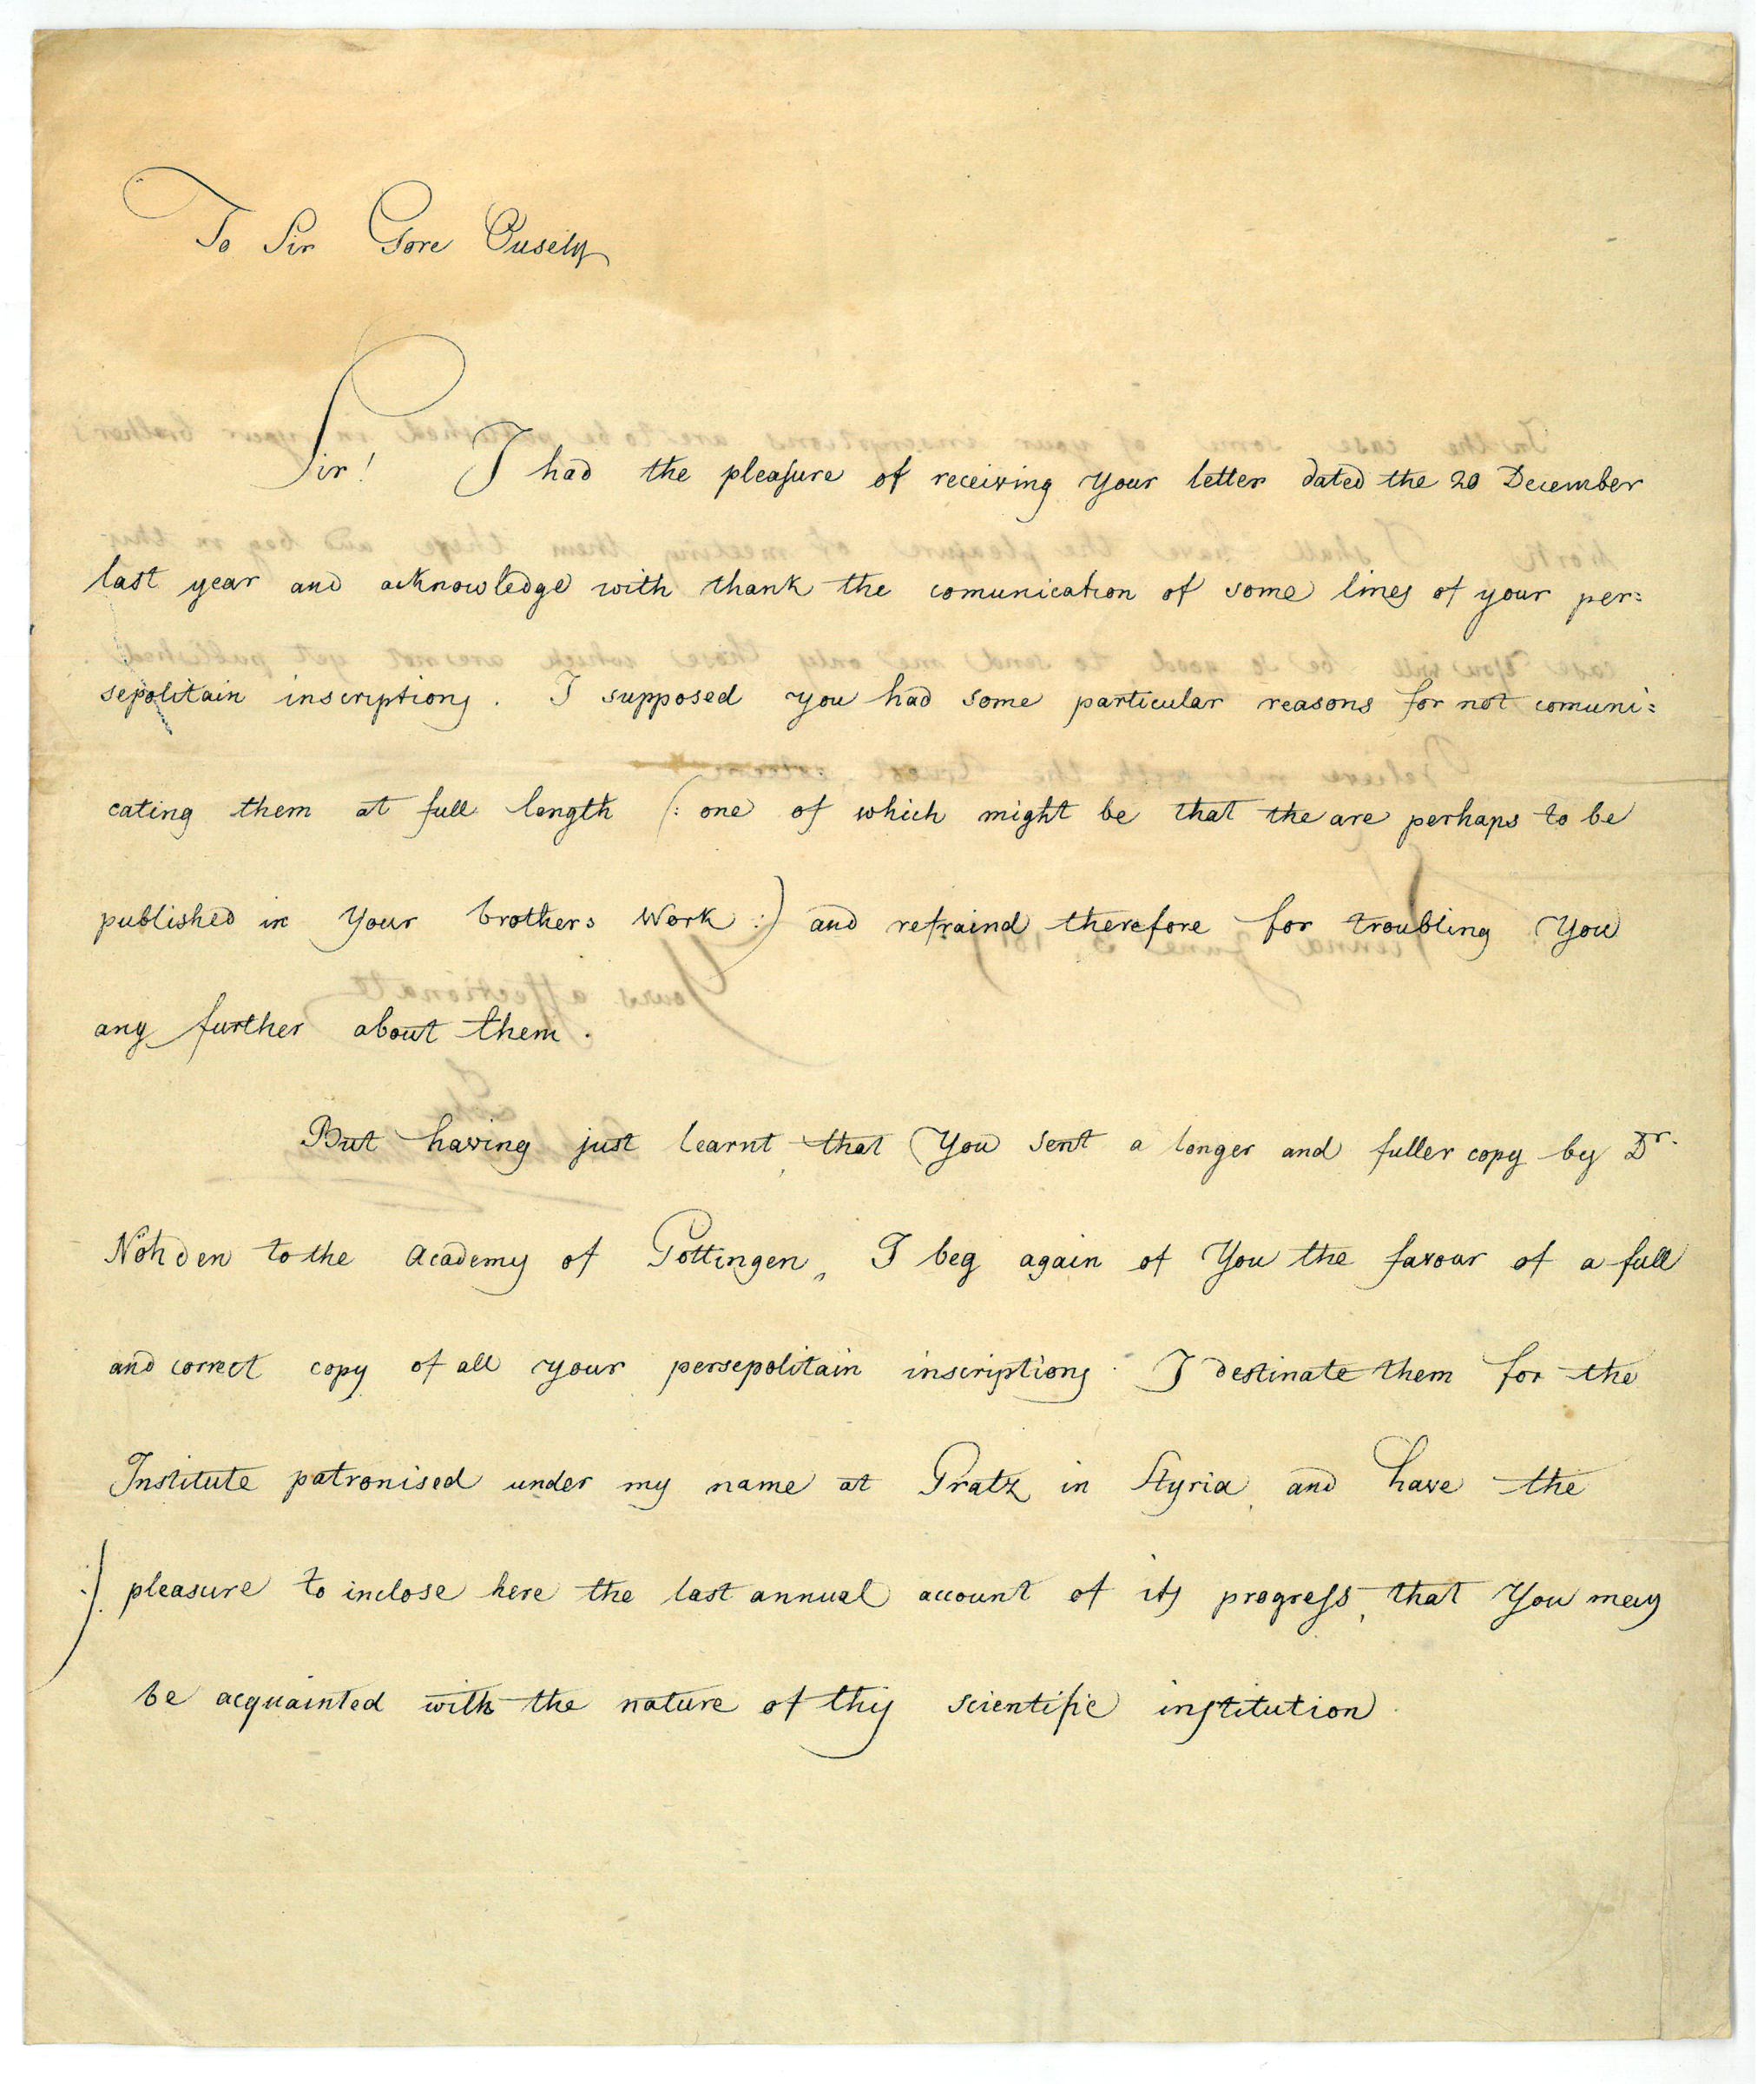 To Sir Gore Ousely
Sir! I had the pleasure of receiving Your letter dated the 20 December
last year and acknowledge with thank the comunication of some lines of your per:
sepolitain inscriptions. I supposed you had some particular reasons for not comuni:
cating them at full length (: one of which might be that the are perhaps to be
published in Your brothers Work :) and refraind therefore for troubling You
any further about them.
But having just learnt, that You sent a longer and fuller copy by Dr.
Nöhden to the Academy of Gottingen, I beg again of You the favour of a full
and correct copy of all your persepolitain inscriptions. I destinate them for the
Institute patronised under my name at Gratz in Styria, and have the
:). pleasure to inclose here the last annual account of its progress, that You may
be acquainted with the nature of this scientific institution.